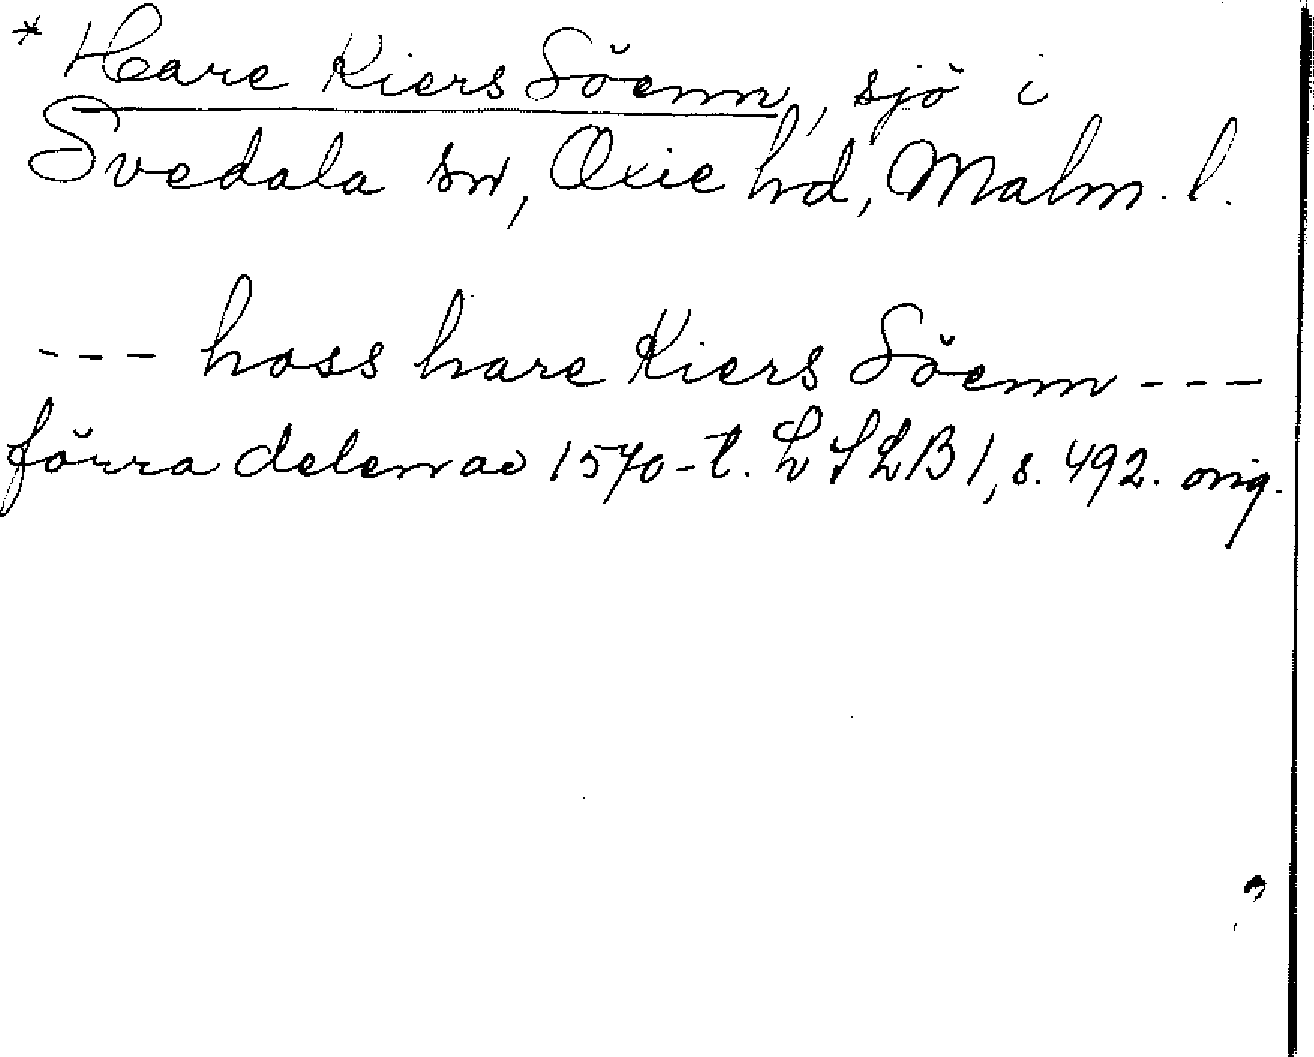 * Hare Kiers Söenn, sjö i
Svedala sn, Oxie hd, Malm. l.
--- hoss hare Kiers Söenn ---
förra delen av 1570-t. LSLB 1, s. 492. orig.